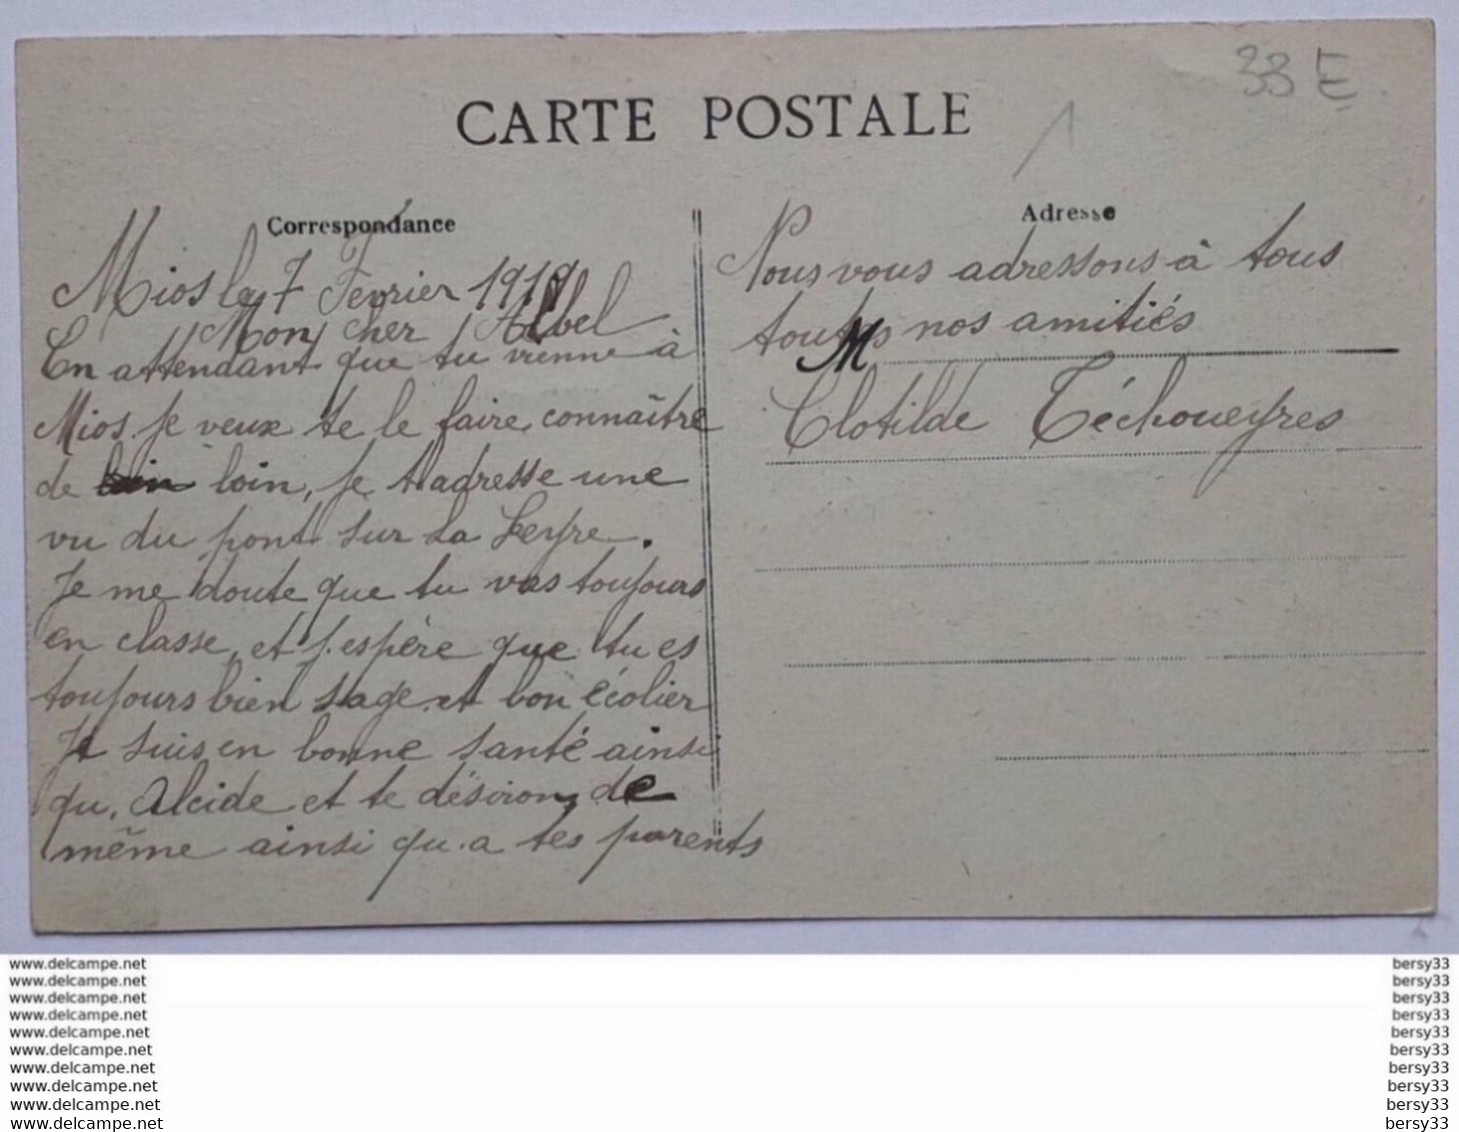 33 E
CARTE POSTALE
Correspondance
Mios le 7 Fevrier 1919
Mon cher Abel
En attendant que tu vienne à
Mios je veux te le faire connaître
de loin, je t'adresse une
vu du pont sur la Leyre.
Je me doute que tu vas toujours
en classe, et j'espère que tu es
toujours bien sage et bon écolier
Je suis en bonne santé ainsi
qu'Alcide et te désirons de
même ainsi qu'a tes parents
Adresse
Nous vous adressons à tous
toutes nos amitiés
M
Clotilde Téchoueyres
www.delcampe.net
www.delcampe.net
www.delcampe.net
www.delcampe.net
www.delcampe.net
www.delcampe.net
www.delcampe.net
www.delcampe.net
www.delcampe.net
www.delcampe.net
bersy33
bersy33
bersy33
bersy33
bersy33
bersy33
bersy33
bersy33
bersy33
bersy33